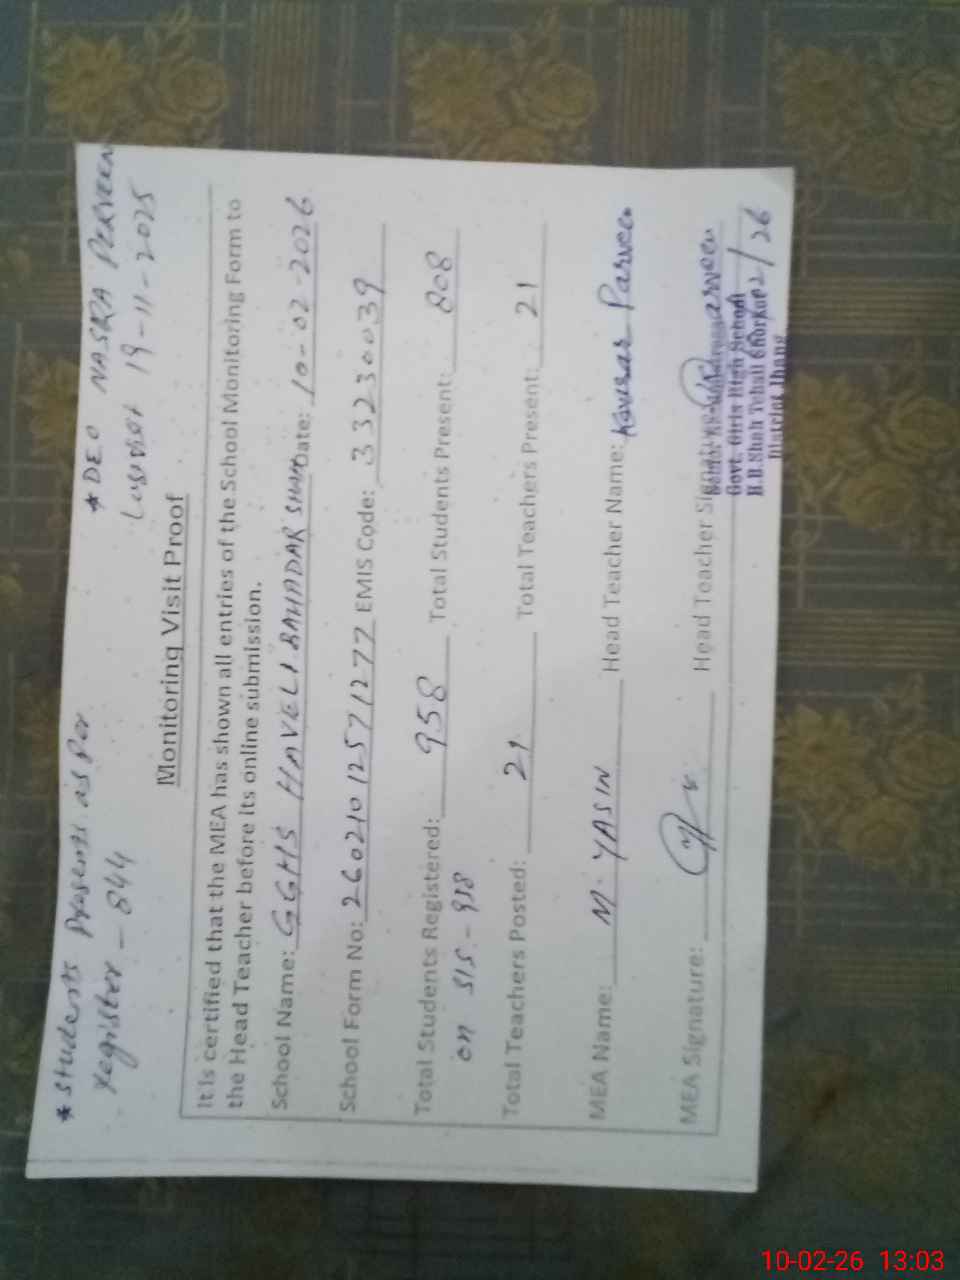 * Students Presents as per register - 844
* DEO NASRA PERVEEN
Last visit 19-11-2025
Monitoring Visit Proof
It is certified that the MEA has shown all entries of the School Monitoring Form to
the Head Teacher before its online submission.
School Name: GGHS HAVELI BAHADAR SHAH Date: 10-02-2026
School Form No: 26021012571277 EMIS Code: 33230039
Total Students Registered: 958 Total Students Present: 808
on SIS - 958
Total Teachers Posted: 21 Total Teachers Present: 21
MEA Name: M. YASIN Head Teacher Name: Kousar Parveen
MEA Signature: Head Teacher Signature:
Govt. Girls High School
H.B.Shah Tehsil Shorkot
District Jhang
10-02-26 13:03